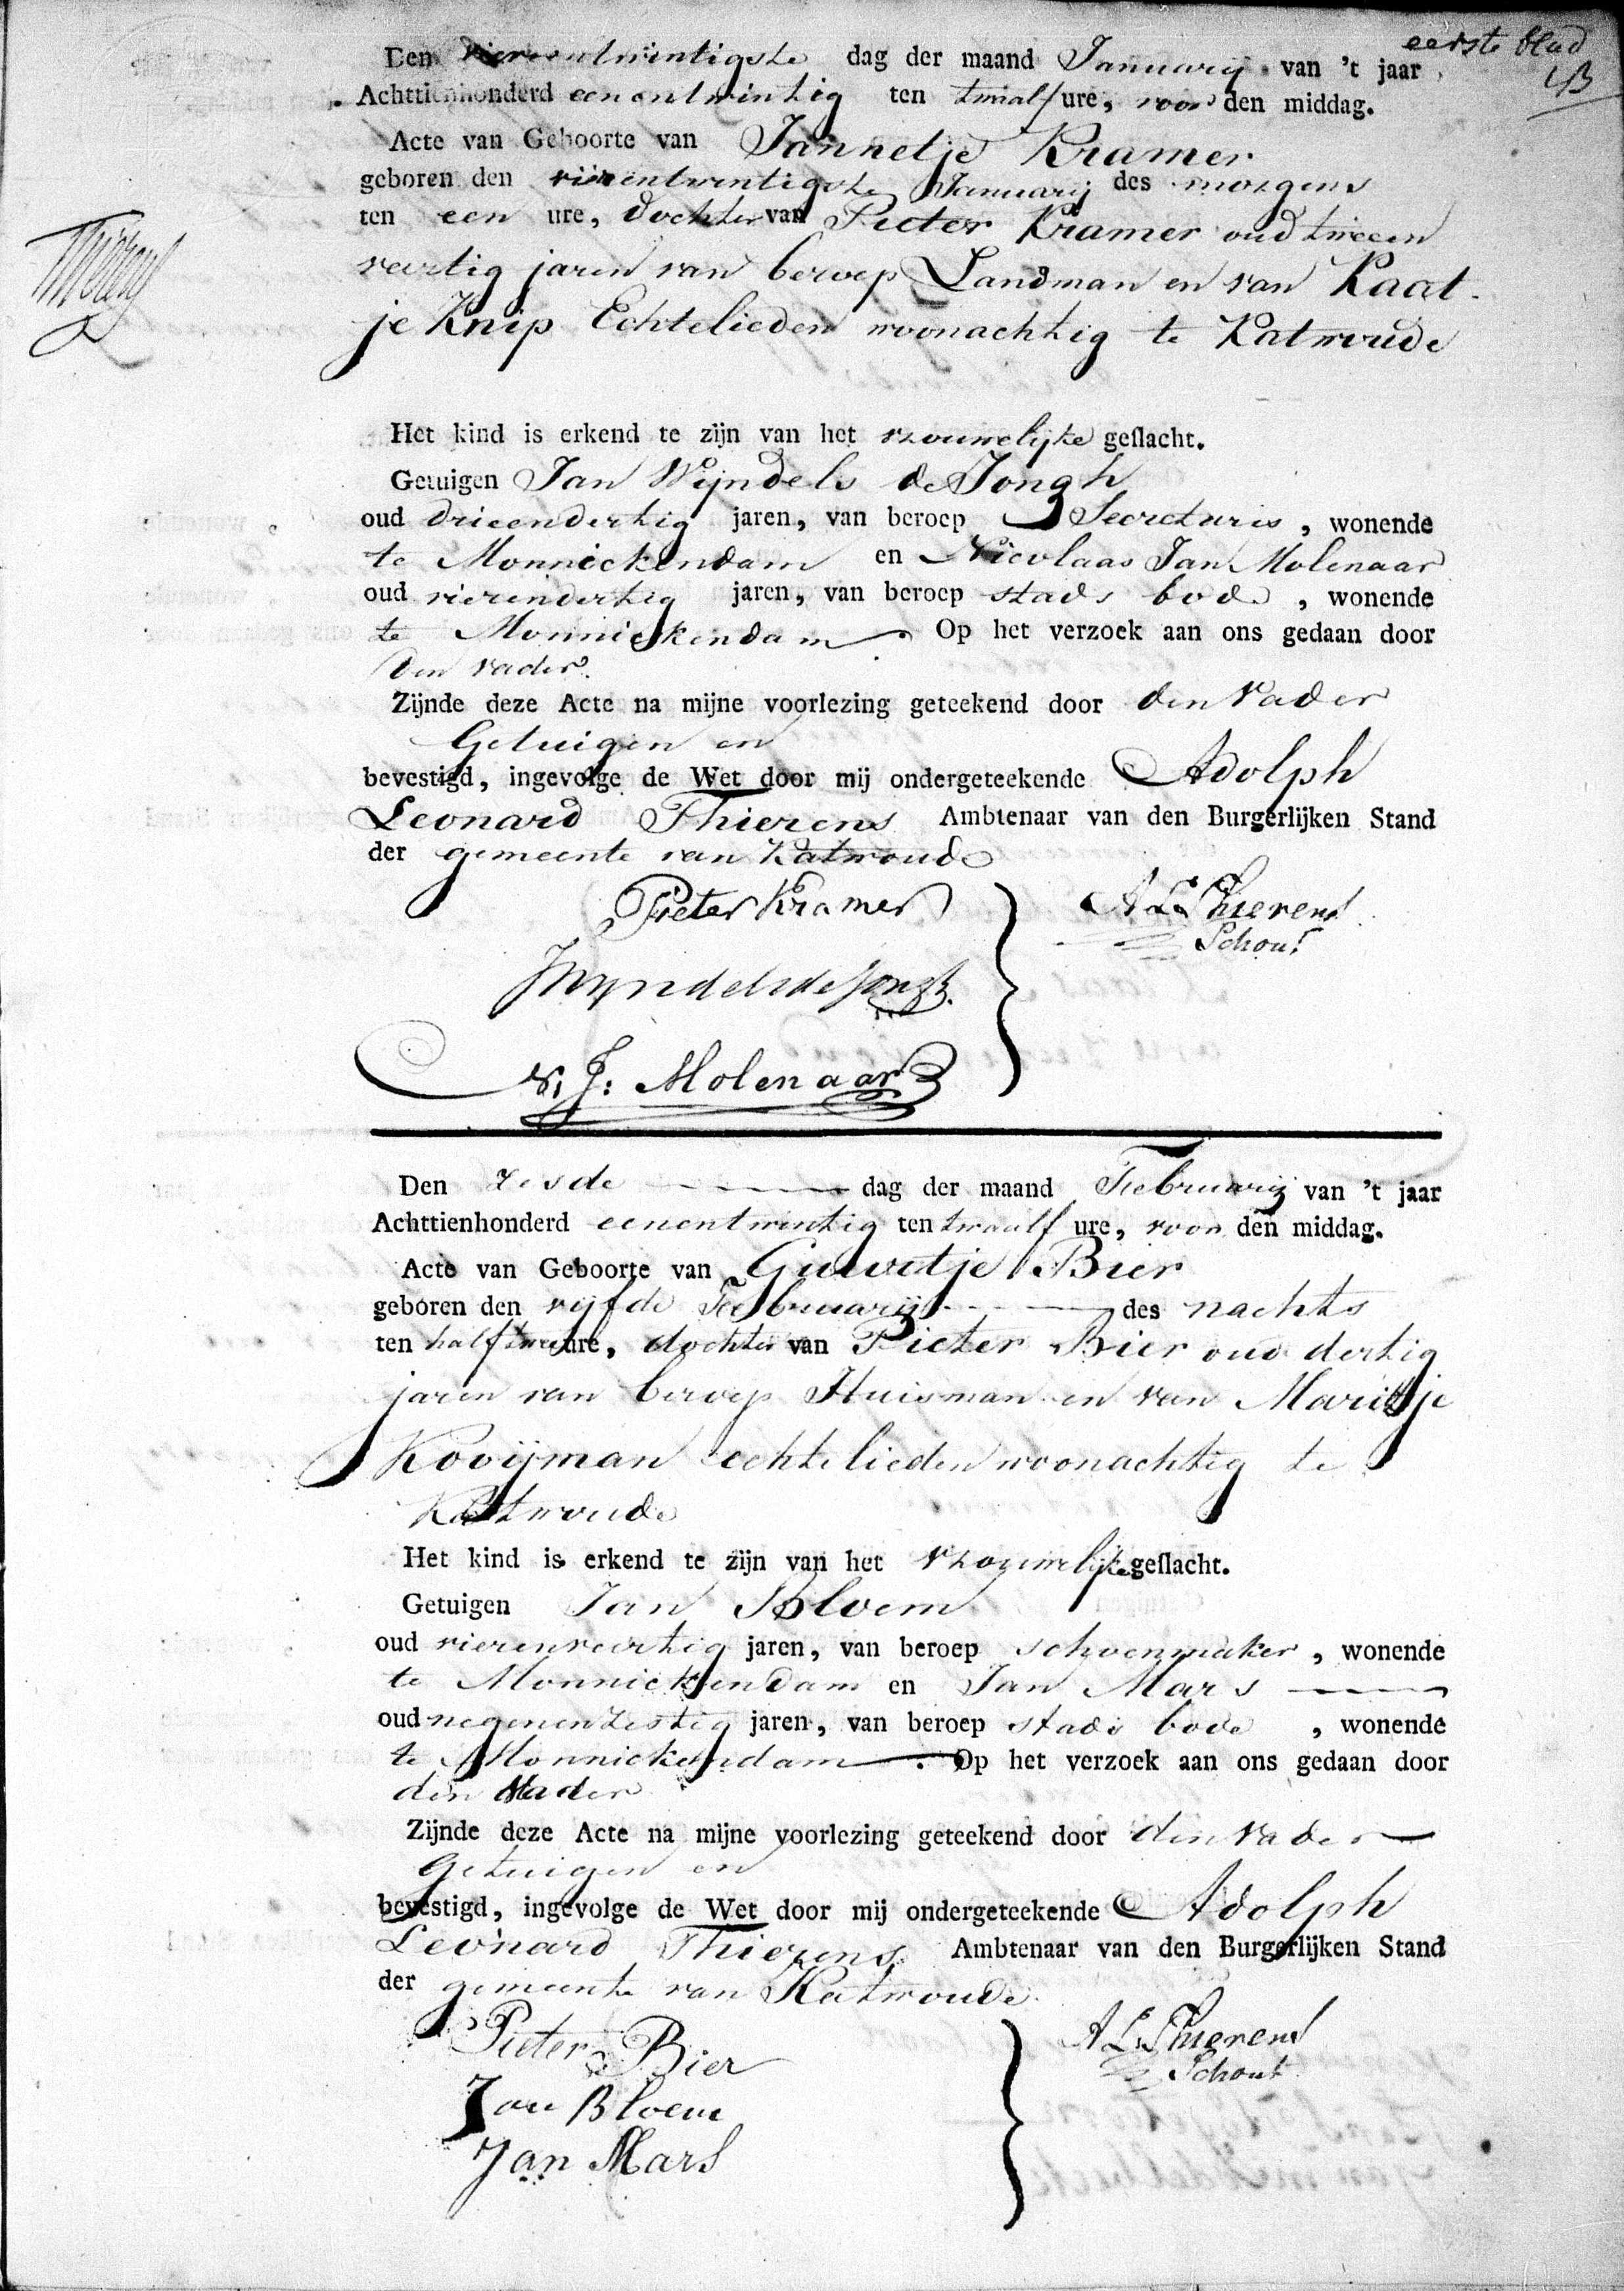 eerste blad
Den vierentwintigste dag der maand Januarij van 't jaar
Achttienhonderd eenentwintig ten twaalf ure, voor den middag.
Acte van Geboorte van Jannetje Kramer
geboren den vierentwintigste Januarij des morgens
ten een ure, dochter van Pieter Kramer oud tweeen
veertig jaren van beroep Landman en van Kaat-
je Knip Echtelieden woonachtig te Katwoude
Het kind is erkend te zijn van het vrouwelijke geslacht.
Getuigen Jan Wijndels de Jongh
oud drieendertig jaren, van beroep Secretaris, wonende
te Monnickendam en Nicolaas Jan Molenaar
oud vierendertig jaren, van beroep stads bode, wonende
te Monnickendam. Op het verzoek aan ons gedaan door
den vader.
Zijnde deze Acte na mijne voorlezing geteekend door den Vader
Getuigen en
bevestigd, ingevolge de Wet door mij ondergeteekende Adolph
Leonard Thierens Ambtenaar van den Burgerlijken Stand
der gemeente van Katwoude
Pieter Kramer
A L Thierens
Schout
JWyndels de Jongh.
N. J: Molenaar
Den zesde dag der maand Februarij van 't jaar
Achttienhonderd eenentwintig ten twaalf ure, voor den middag.
Acte van Geboorte van Guurtje Bier
geboren den vijfde Februarij des nachts
ten half twee ure, dochter van Pieter Bier oud dertig
jaren van beroep Huisman en van Marijtje
Kooijman echtelieden woonachtig te
Katwoude
Het kind is erkend te zijn van het vrouwelijke geslacht.
Getuigen Jan Bloem
oud vierenveertig jaren, van beroep schoenmaker, wonende
te Monnickendam en Jan Mars
oud negenenzestig jaren, van beroep stads bode, wonende
te Monnickendam. Op het verzoek aan ons gedaan door
den Vader
Zijnde deze Acte na mijne voorlezing geteekend door den Vader
Getuigen en
bevestigd, ingevolge de Wet door mij ondergeteekende Adolph
Leonard Thierens Ambtenaar van den Burgerlijken Stand
der gemeente van Katwoude.
Pieter Bier
A L Thierens
Schout
Jan Bloem
Jan Mars